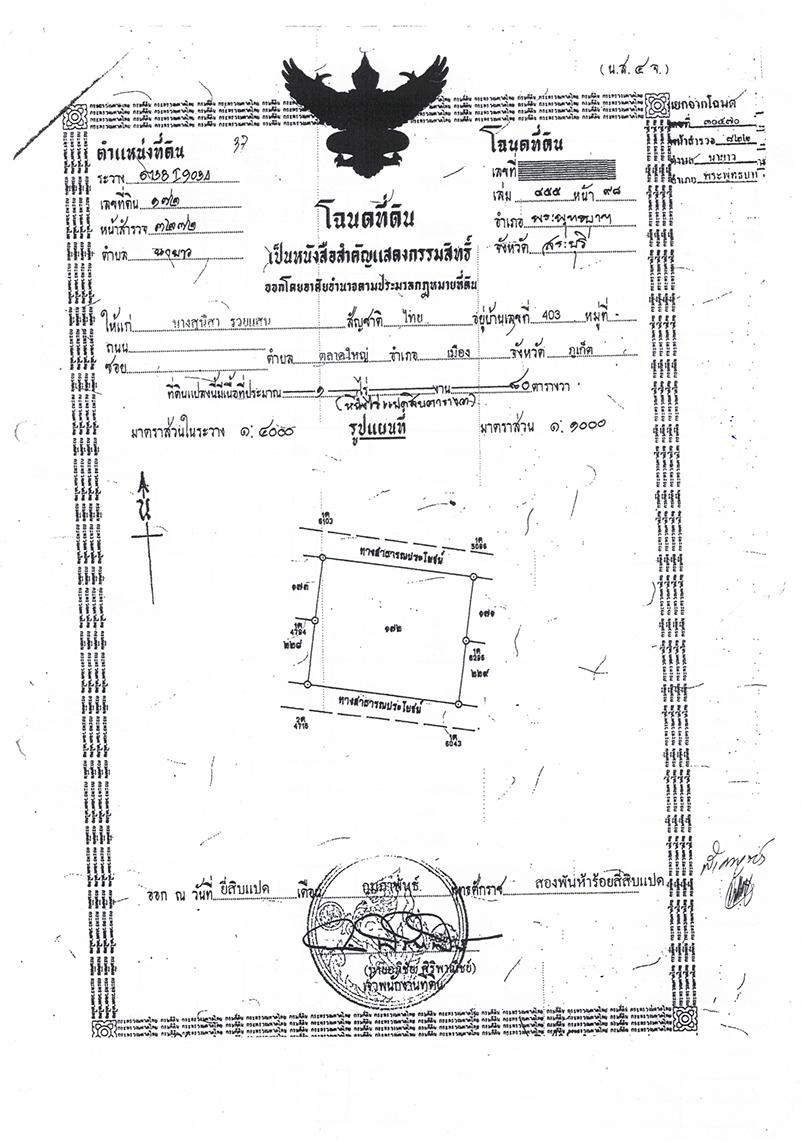 (น.ส. ๔ จ.)
แยกจากโฉนด
เลขที่ ๓๐๔๗๐
หน้าสำรวจ ๘๒๒
ตำบล นายาว
อำเภอ พระพุทธบาท
ตำแหน่งที่ดิน
37
ระวาง 5138 I 9034
เลขที่ดิน ๑๗๒
หน้าสำรวจ ๓๒๗๒
ตำบล นายาว
โฉนดที่ดิน
เลขที่
เล่ม ๔๕๕ หน้า ๙๘
อำเภอ พระพุทธบาท
จังหวัด สระบุรี
โฉนดที่ดิน
เป็นหนังสือสำคัญแสดงกรรมสิทธิ์
ออกโดยอาศัยอำนาจตามประมวลกฎหมายที่ดิน
ให้แก่ นางสุนิสา รวยแสน สัญชาติ ไทย อยู่บ้านเลขที่ 403 หมู่ที่
ถนน
ซอย ตำบล ตลาดใหญ่ อำเภอ เมือง จังหวัด ภูเก็ต
ที่ดินแปลงนี้มีเนื้อที่ประมาณ ๑ ไร่ - งาน ๘๐ ตารางวา
(หนึ่งไร่แปดสิบตารางวา)
มาตราส่วนในระวาง ๑: ๔๐๐๐ รูปแผนที่ มาตราส่วน ๑: ๑๐๐๐
น
1ค
6103
1ค
5086
ทางสาธารณประโยชน์
๑๗๓
๑๗๑
๑๗๒
1ค
4794
1ค
6296
๒๒๘
๒๒๙
ทางสาธารณประโยชน์
2ค
4715
1ค
6043
ออก ณ วันที่ ยี่สิบแปด เดือน กุมภาพันธ์ พุทธศักราช สองพันห้าร้อยสี่สิบแปด
เจ้าพนักงานที่ดิน